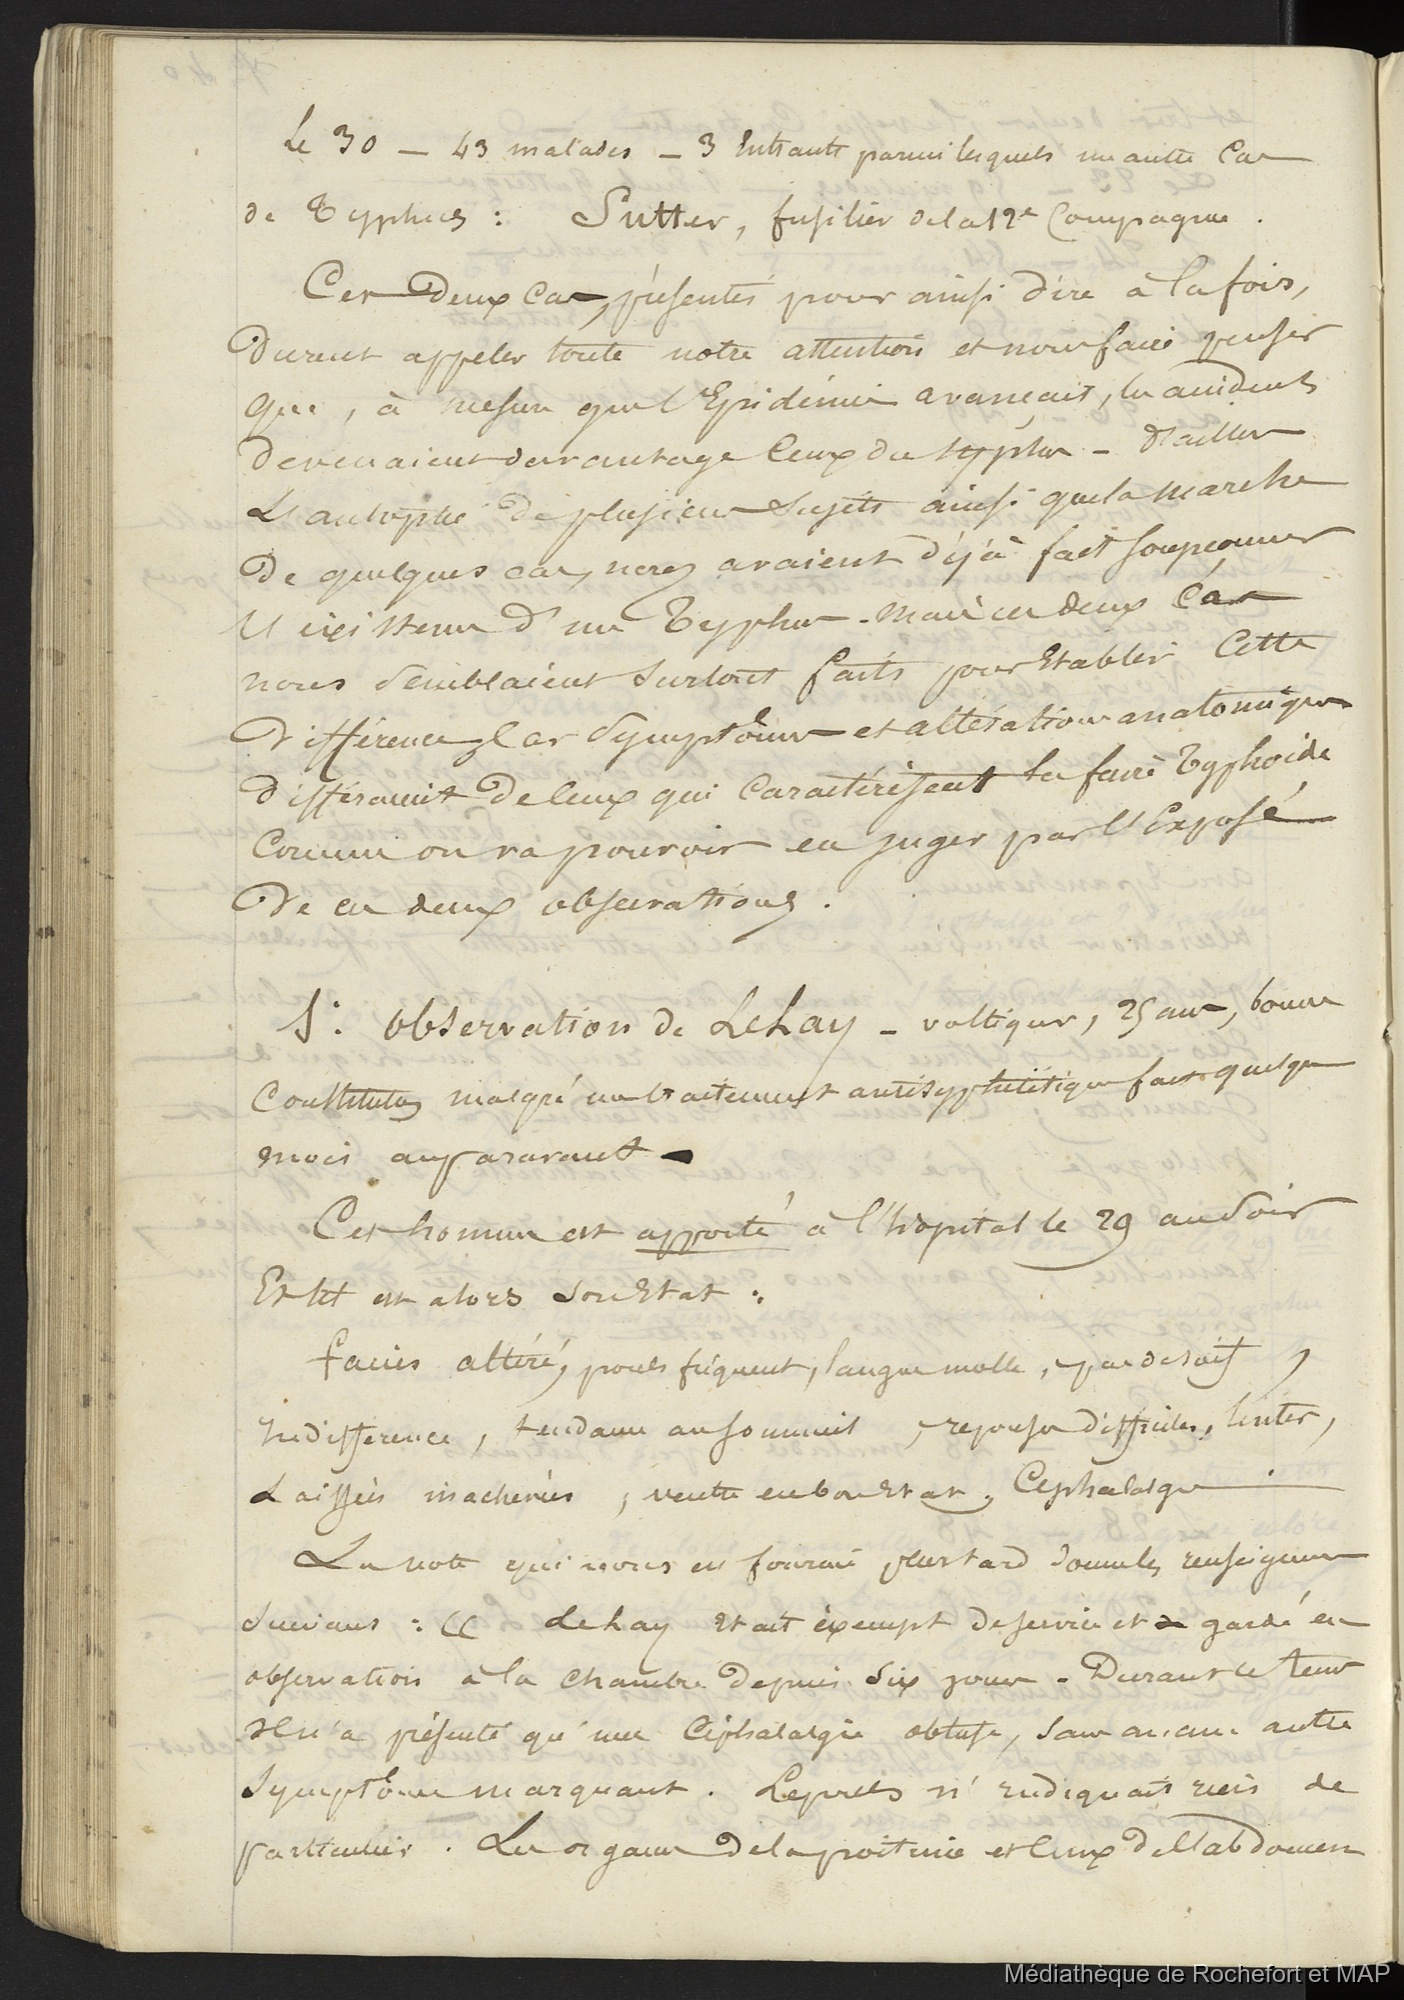 Le 30 — 43 malades — 3 Entrants parmi lesquels un autre Cas
de Typhus : Sutter, fusilier de la 12e Compagnie .
Ces deux Cas, présentés pour ainsi dire à la fois,
Durent appeler toute notre attention et nous faire penser
que, à mesure que l'Epidémie avançait, les accidents
devenaient davantage ceux du typhus - D'ailleurs
L'autopsie de plusieurs Sujets ainsi que la marche
De quelques cas, nous avaient déjà fait soupçonner
L'existence d'un Typhus - Mais ces deux Cas
nous semblaient surtout faits pour Etablir Cette
Différence, car Symptômes et altérations anatomiques
différaient de ceux qui Caractérisent la fièvre Typhoïde
Comme on va pouvoir en juger par l'Exposé
De ces deux observations .
1°. Observation de LeHay - voltigeur, 25 ans, bonne
Constitution malgré un traitement antisyphilitique fait quelques
mois auparavant -
Cet homme est apporté à l'hôpital le 29 au Soir
Et tel est alors son Etat :
Facies altéré, pouls fréquent, langue molle, peu de soif,
Indifférence, tendance au sommeil, réponses difficiles, lentes,
Laissées inachevées, ventre en bon Etat, Céphalalgie .
La note qui nous est fournie plus tard donne les renseignemens
Suivans : « LeHay était exempt de service et gardé en
observation à la chambre depuis six jours - Durant ce tems
Il n'a présenté qu'une Céphalalgie obtuse, sans aucun autre
Symptôme marquant . Le pouls n'indiquait rien de
particulier . Les organes de la poitrine et ceux de l'abdomen
Médiathèque de Rochefort et MAP